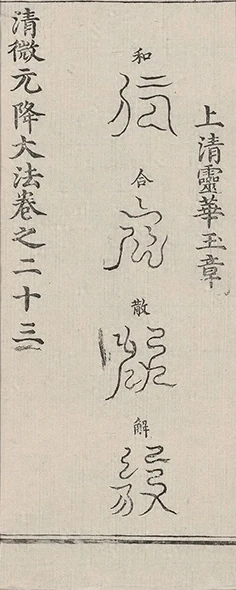 上清靈華玉章
和
合
散
解
清微元降大法卷之二十三